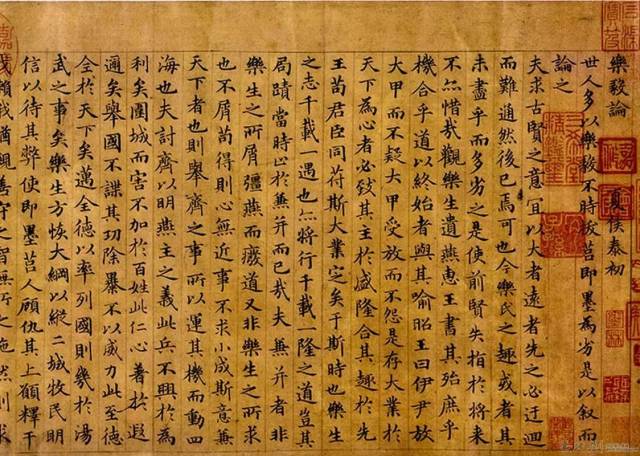 樂毅論 夏侯泰初
世人多以樂毅不時拔莒即墨為劣是以叙而
論之
夫求古賢之意宜以大者遠者先之必迂迴
而難通然後已焉可也今樂氏之趣或者其
未盡乎而多劣之是使前賢失指於將来
不亦惜哉觀樂生遺燕惠王書其殆庶乎
機合乎道以終始者與其喻昭王曰伊尹放
大甲而不疑大甲受放而不怨是存大業於
天下為心者必致其主於盛隆合其趣於先
王苟君臣同苻斯大業定矣于斯時也樂生
之志千載一遇也亦將行千載一隆之道豈其
局蹟當時止於兼并而已哉夫兼并者非
樂生之所屑彊燕而癈道又非樂生之所求
也不屑苟得則心無近事不求小成斯意兼
天下者也則舉齊之事所以運其機而動四
海也夫討齊以明燕主之義此兵不興於為
利矣圍城而害不加於百姓此仁心著於遐
邇矣舉國不謀其功除暴不以威力此至德
全於天下矣邁全德以率列國則幾於湯
武之事矣樂生方恢大綱以縱二城牧民明
信以待其弊使即墨莒人顧仇其上願釋干
戈賴我猶親善守之智無所之施然則求